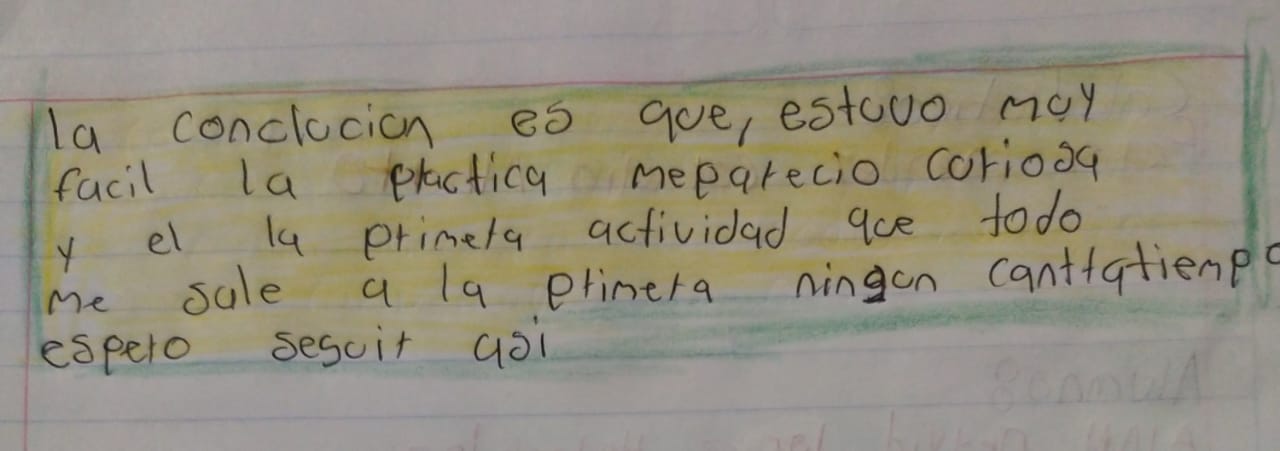 la conclucion es que, estuvo muy
facil la practica meparecio curiosa
y el la primera actividad que todo
me sale a la primera ningun cantratiempo
espero seguir asi